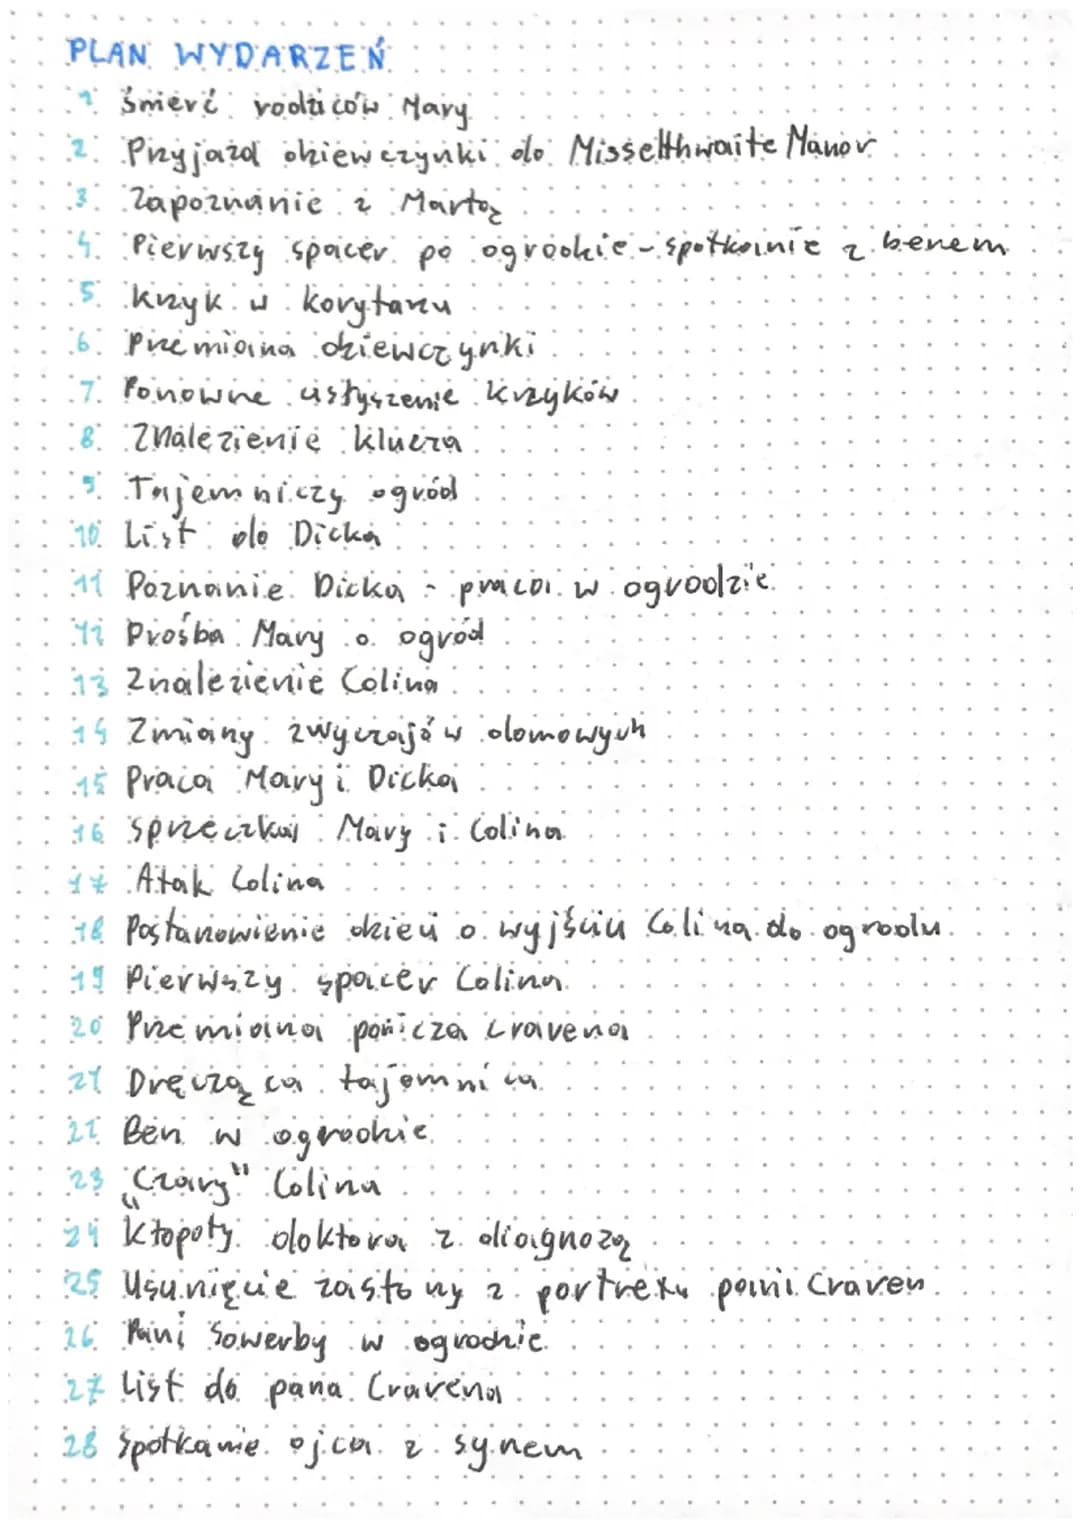 PLAN WYDARZEŃ
1. Śmierć rodziców Mary
2. Przyjazd dziewczynki do Misselthwaite Manor
3. Zapoznanie z Martą
4. Pierwszy spacer po ogrodzie - spotkanie z benem
5. Krzyk w korytarzu
6. Przemiana dziewczynki
7. Ponowne usłyszenie krzyków
8. Znalezienie klucza
9. Tajemniczy ogród
10. List do Dicka
11 Poznanie Dicka - praca w ogrodzie
12 Prośba Mary o ogród
13 Znalezienie Colina
14 Zmiany zwyczajów domowych
15 Praca Mary i Dicka
16 Sprzeczka Mary i Colina
17 Atak Colina
18 Postanowienie dzieci o wyjściu Colina do ogrodu
19 Pierwszy spacer Colina
20 Przemiana panicza Cravena
21 Dręcząca tajemnica
22 Ben w ogrodzie
23 „Czary" Colina
24 Kłopoty doktora z diagnozą
25 Usunięcie zasłony z portretu pani Craven
26 Pani Sowerby w ogrodzie
27 List do pana Cravena
28 Spotkanie ojca z synem